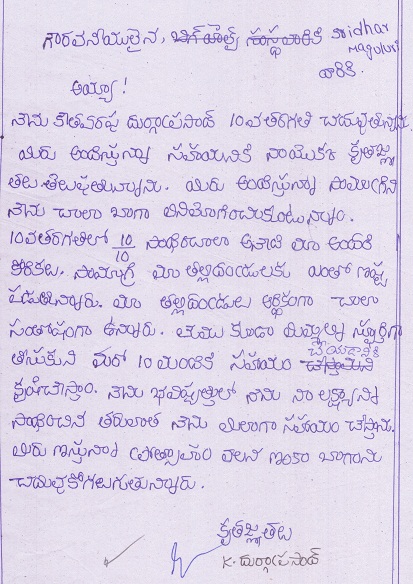 గౌరవనీయులైన, Sridhar
Maguluri
గారికి
అయ్యా!
నేను కొతవరపు దుర్గాప్రసాద్ 10వతరగతి చదువుతున్నాను.
మీరు అందిస్తున్న సహాయనికి నాయొకక కృతజ్ఞ
తలు తెలుపుతున్నాను. మీరు అందిస్తున్న సామాగ్రిని
నేను చాలా బాగా వినియోగించుకుంటున్నాం.
10వతరగతిలో 10/10 సాధించాలా అనేది మా అందరి
కోరికలు. సామాగ్రి మా తల్లిదండులకు ఎంతో ఇష్ట
పడుతున్నారు. మా తల్లిదండులు ఆర్థికంగా చాలా
సంతోషంగా ఉన్నారు. మేము కూడా మిమ్మల్ని స్పూర్తిగా
తీసుకుని మరో 10 మందికి సహాయం చేయడానికి
కృషిచేస్తాం. నేను భవిష్యత్తులో నేను నా లక్ష్యాన్ని
సాధించిన తరువాత నేను మిలాగా సహాయం చేస్తాను.
మీరు ఇస్తున్న ప్రోత్సాహం వలన ఇంకా బాగాను
చదువుకోగలుగుతున్నారు.
కృతజ్ఞతలు
K. దుర్గాప్రసాద్